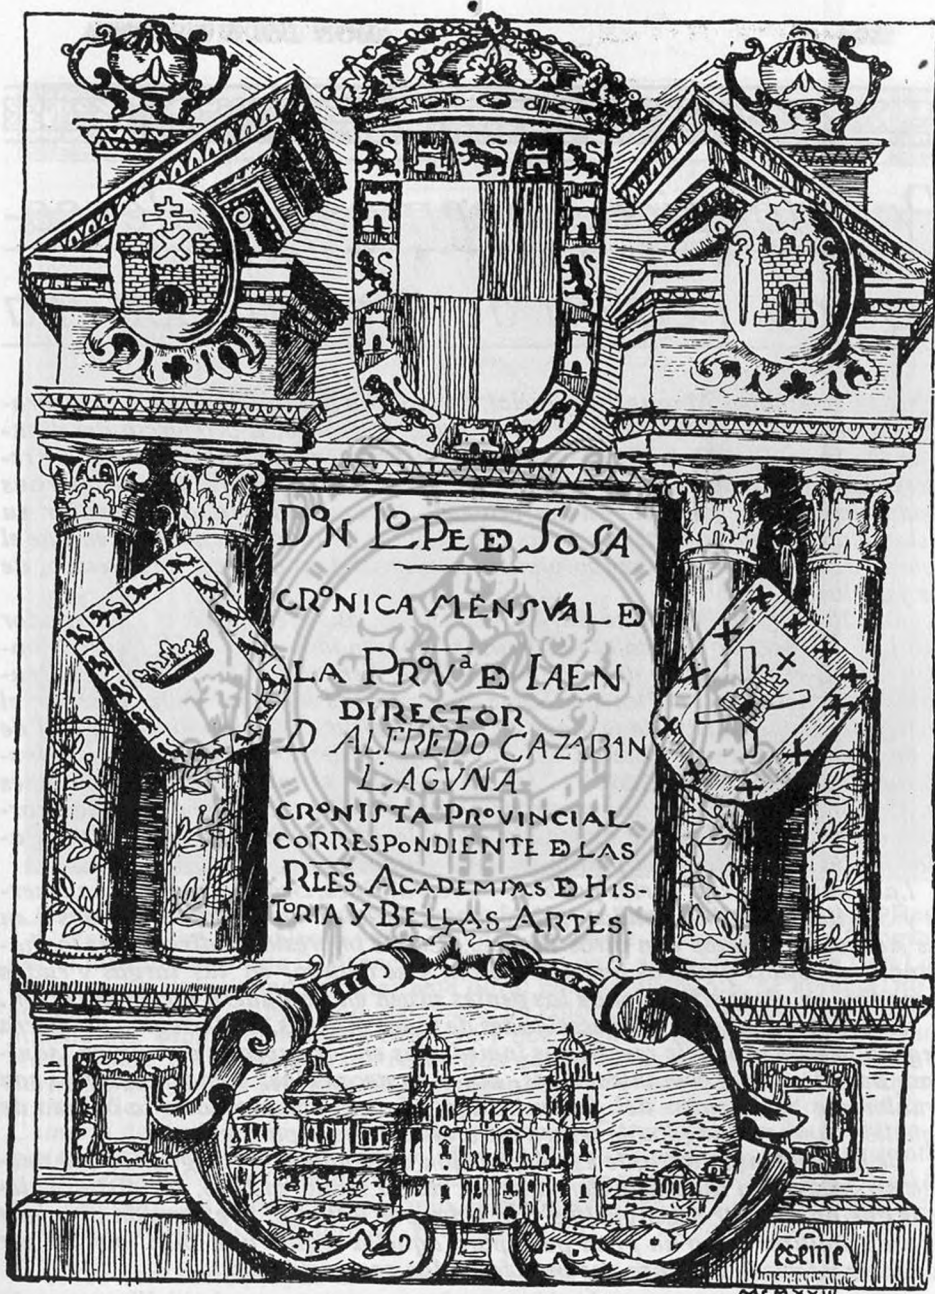 DON LOPE DE SOSA
CRONICA MENSVAL DE
LA PROVª DE IAEN
DIRECTOR
D ALFREDO CAZABAN
LAGVNA
CRONISTA PROVINCIAL
CORRESPONDIENTE DE LAS
RLES ACADEMIAS DE HIS-
TORIA Y BELLAS ARTES.
eseme